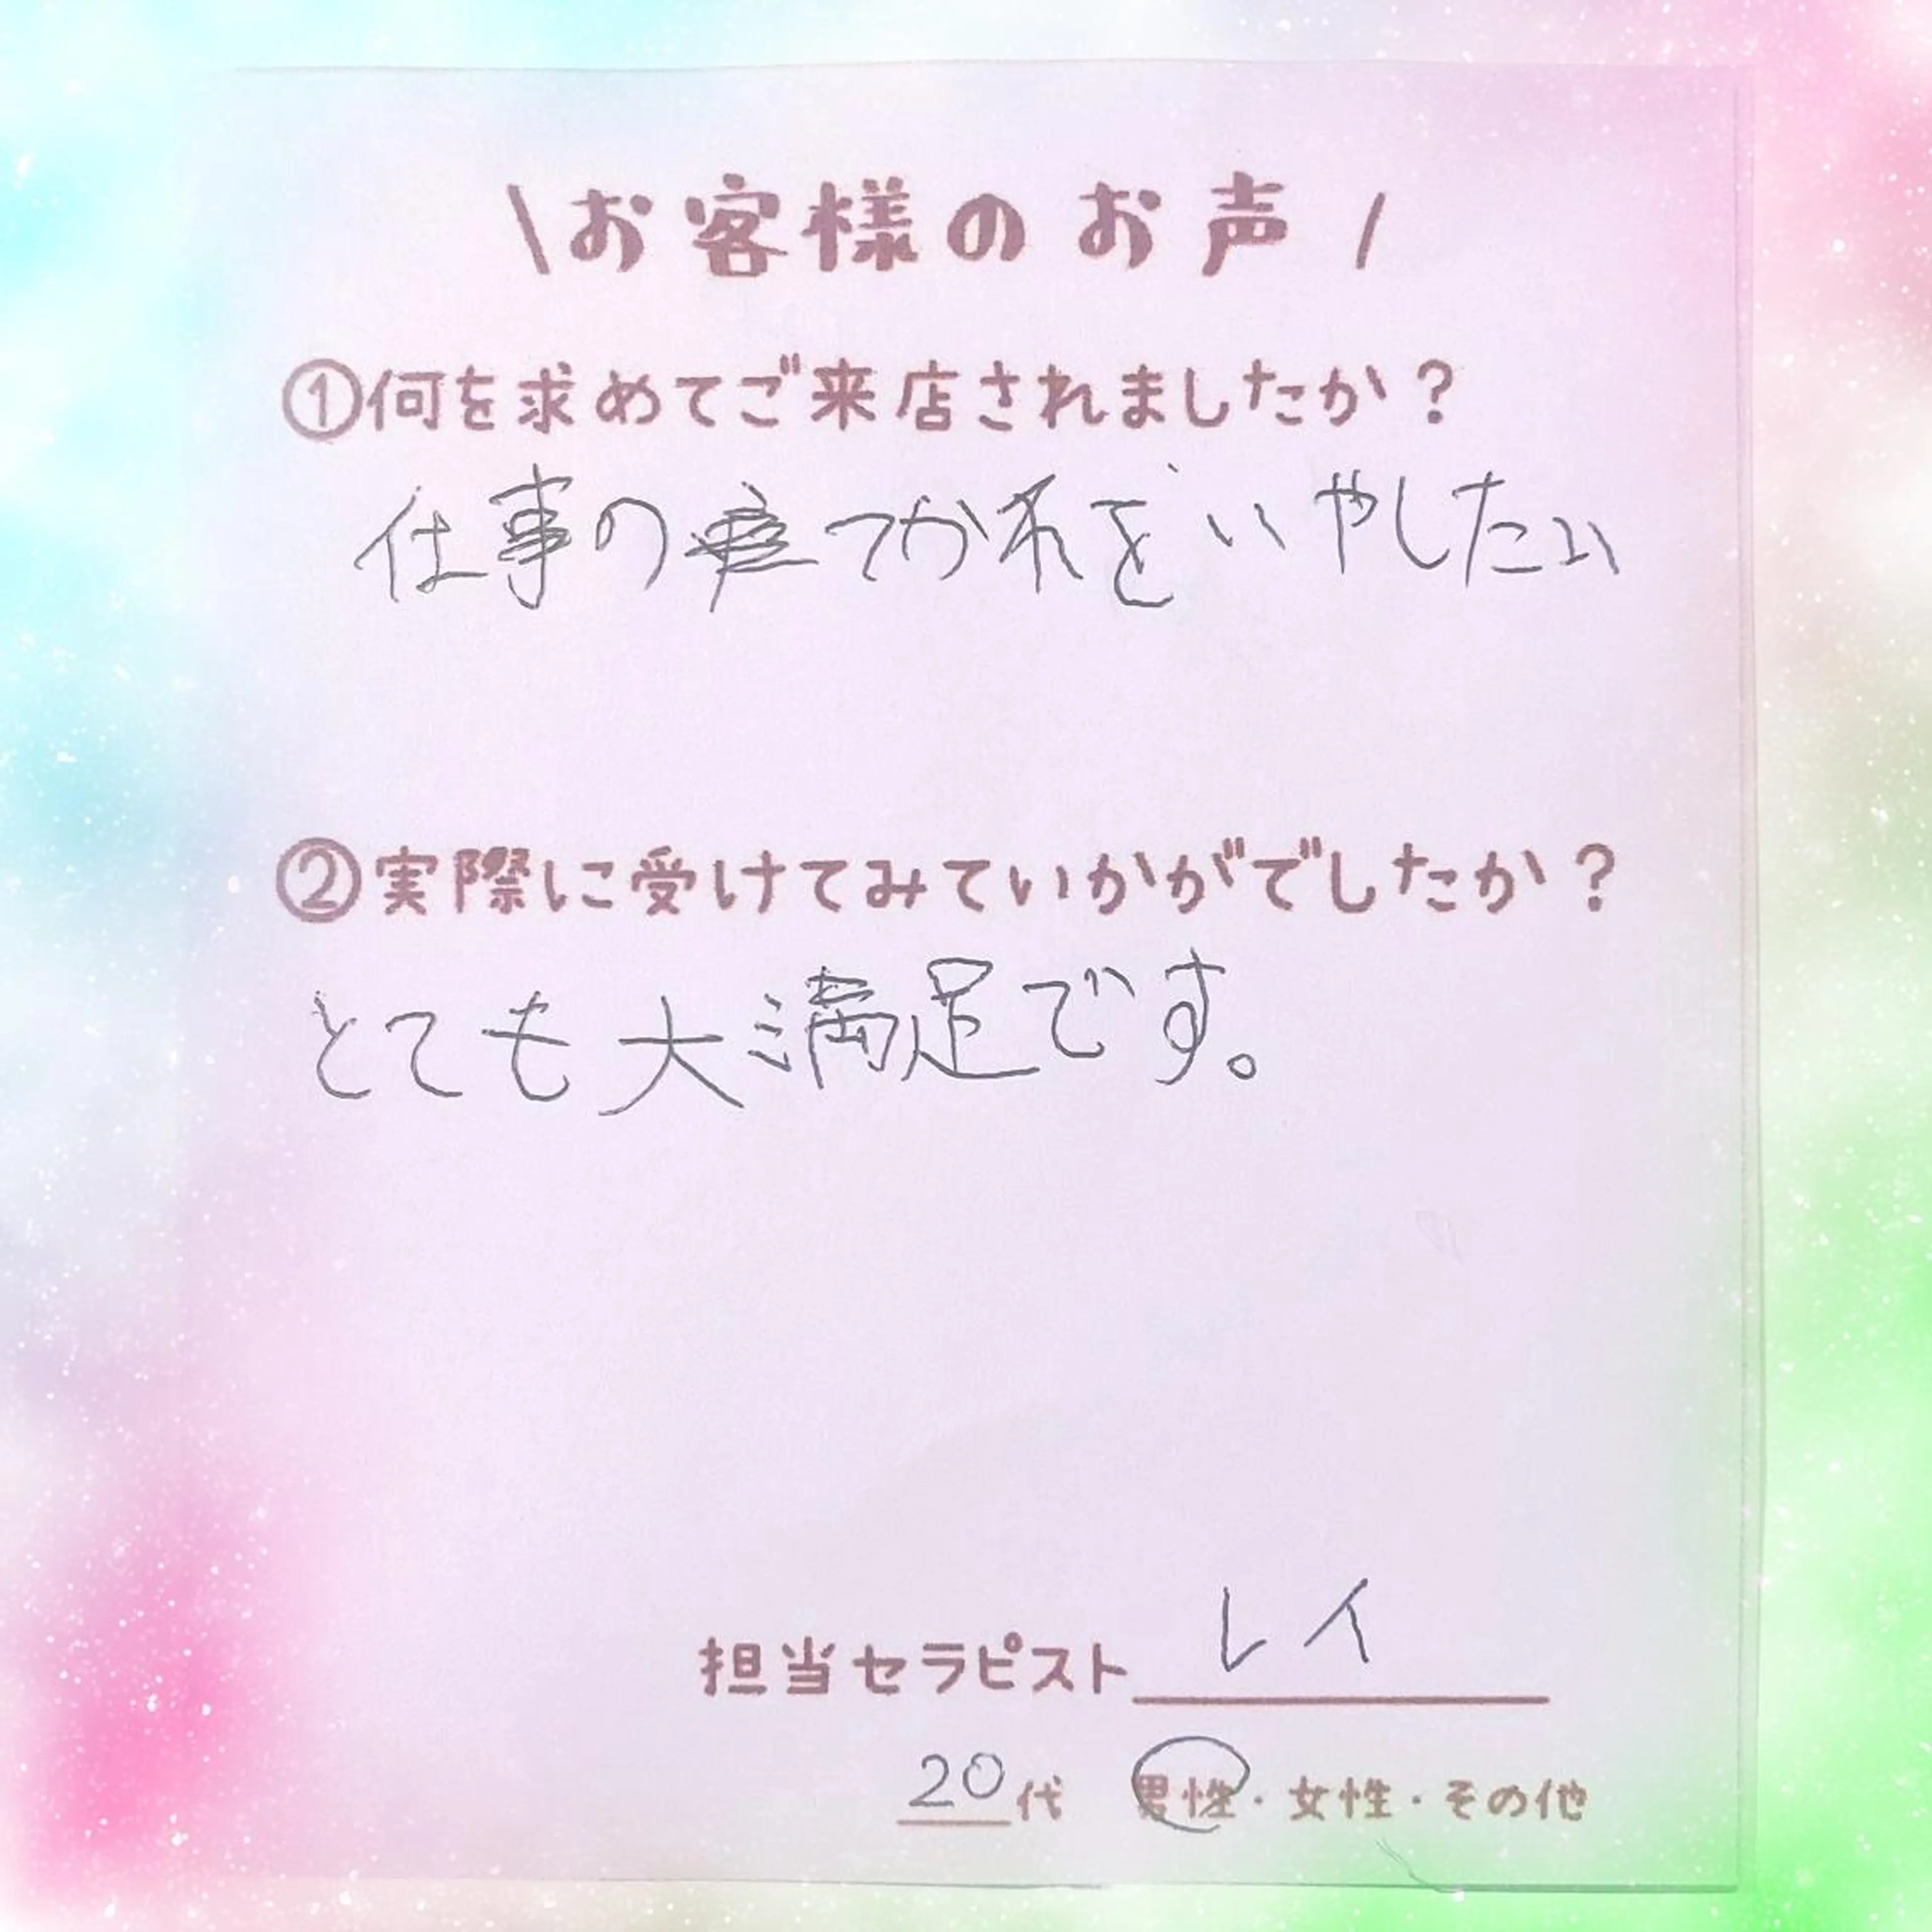 \お客様のお声/
①何を求めてご来店されましたか？
仕事のつかれをいやしたい
②実際に受けてみていかがでしたか？
とても大満足です。
担当セラピスト レイ
20代 男性・女性・その他